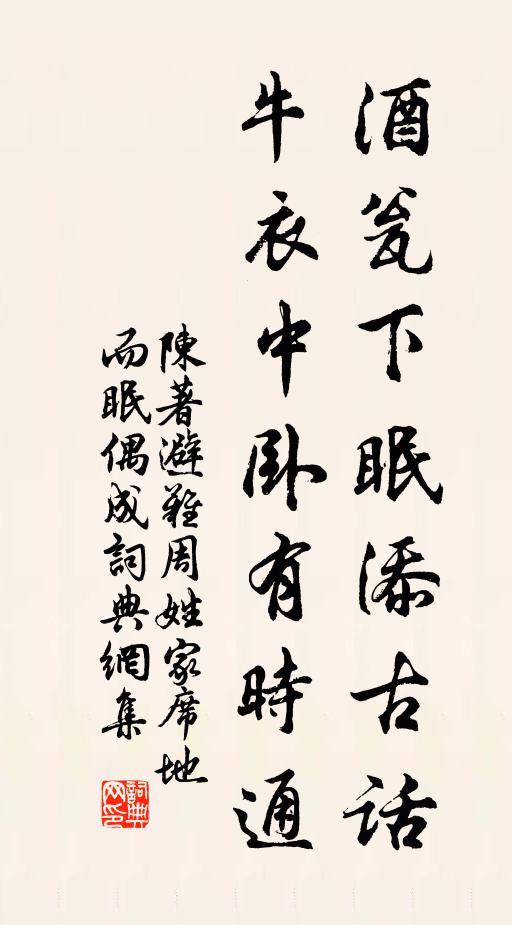 酒瓮下眠添古话
牛衣中卧有時通
陳著避難周姓家席地
而眠偶成詞典網集
詞典
网印